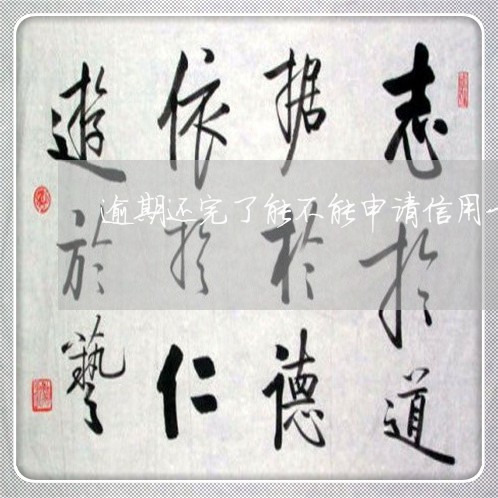 志於道
据於德
依於仁
遊於藝
逾期还完了能不能申请信用